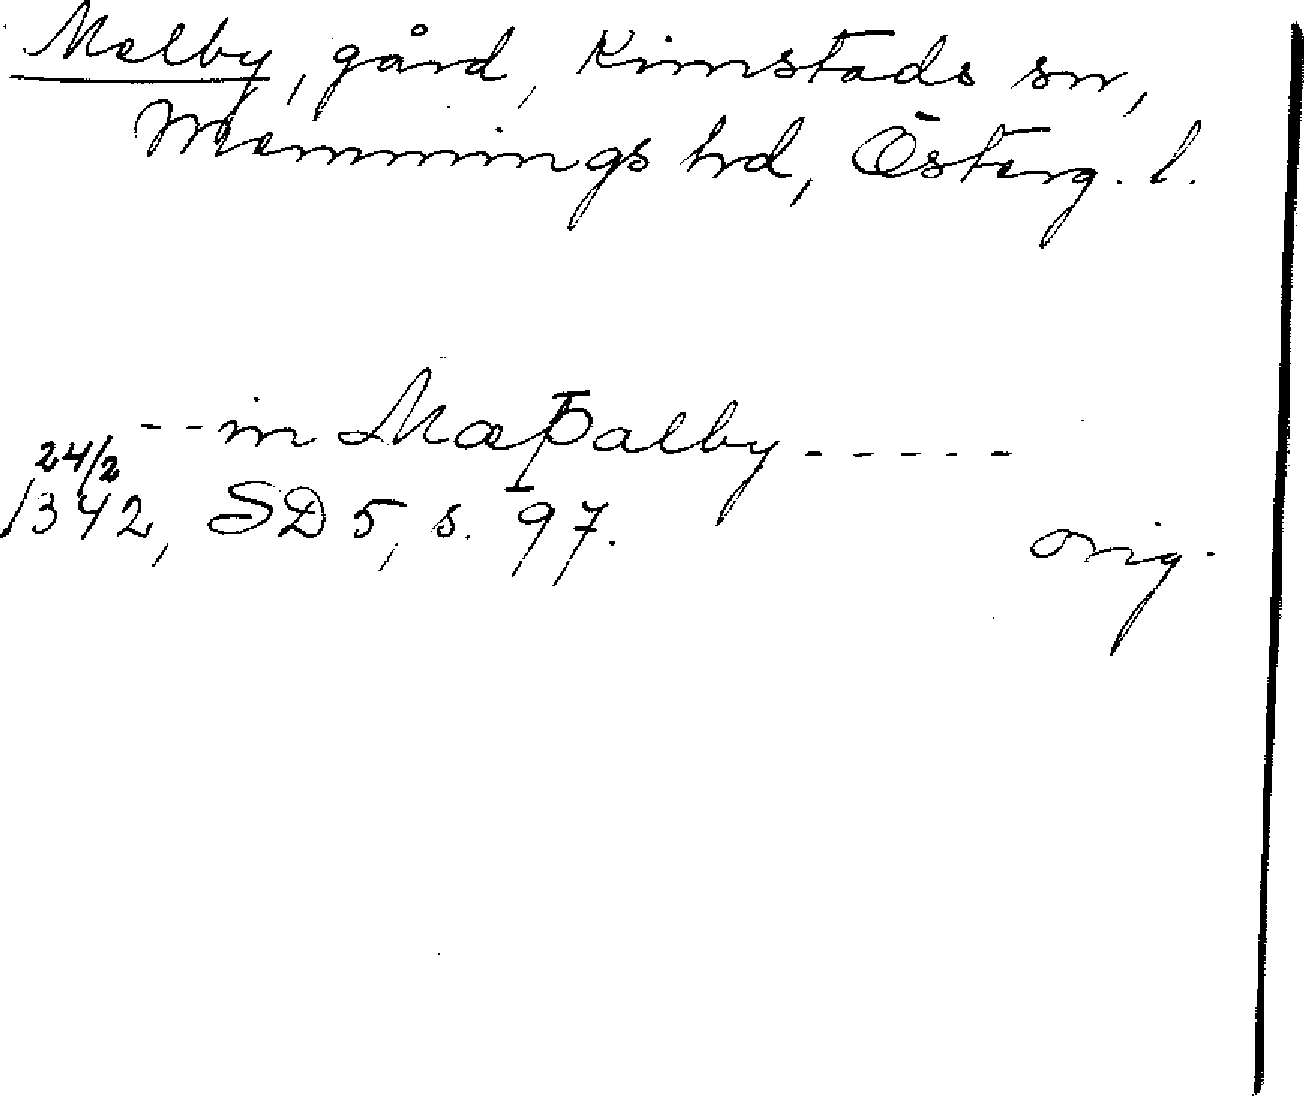 Melby, gård, Kimstads sn,
Memmings hd, Österg. l.
-- in Mæþalby -----
24/2
1342, SD 5, s. 97.
orig.